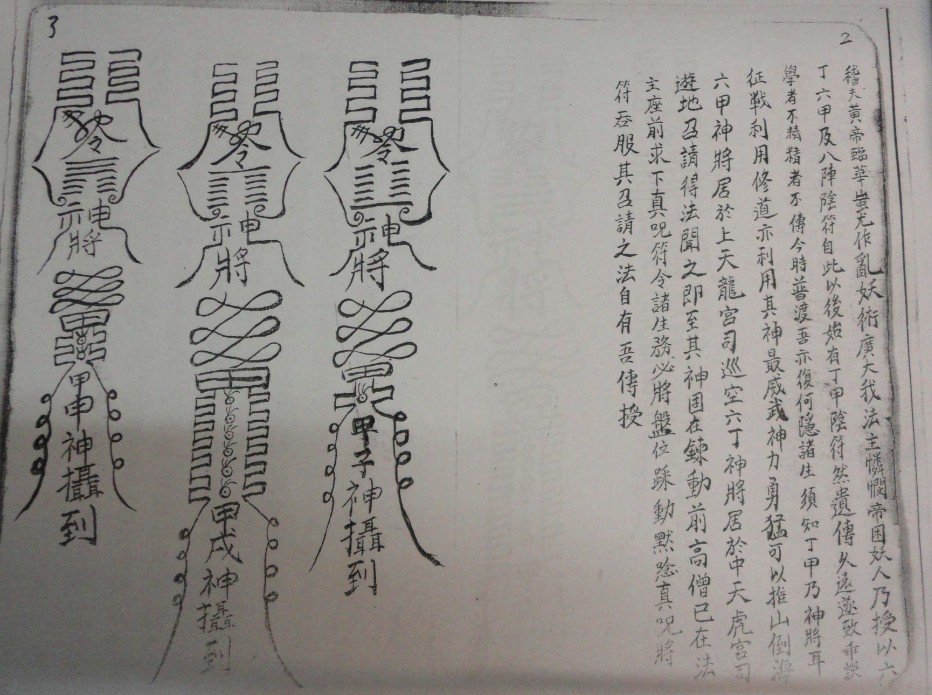 2
稽夫黃帝臨華蚩尤作亂妖術廣大我法主憐憫帝困妖人乃授以六
丁六甲及八陣陰符自此以後始有丁甲陰符然遺傳久遠遂致乖誤
學者不精精者不傳今時普渡吾亦復何隱諸生須知丁甲乃神將耳
征戰利用修道亦利用其神最威武神力勇猛可以推山倒海
六甲神將居於上天龍宮司巡空六丁神將居於中天虎宮司
遊地召請得法聞之即至其神固在鍊動前高僧已在法
主座前求下真呪符令諸生務必將盤位踩動默念真呪將
符吞服其召請之法自有吾傳授
3
神將
甲子神攝到
神將
甲戌神攝到
神將
甲申神攝到